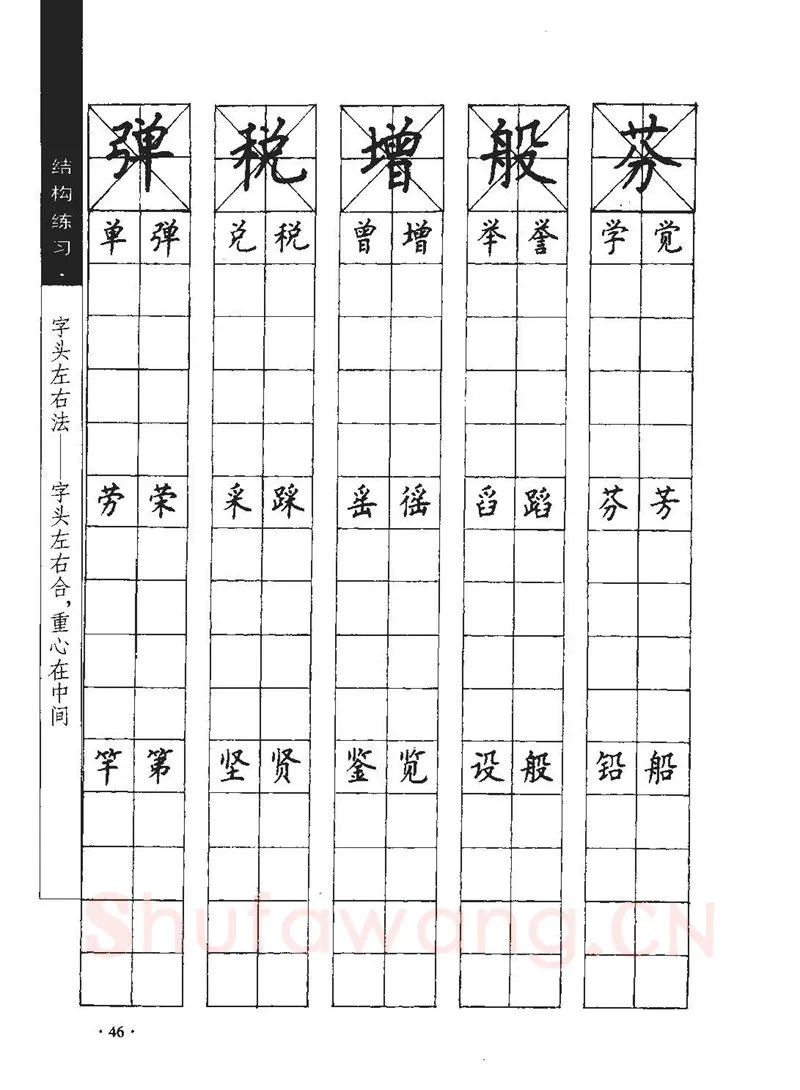 结构练习·
字头左右法——字头左右合，重心在中间
弹 税 增 般 芬
单 弹 兑 税 曾 增 举 誉 学 觉
劳 荣 采 踩 䍃 徭 舀 蹈 芬 芳
竿 第 坚 贤 鉴 览 设 般 铅 船
Shufawang.CN
·46·